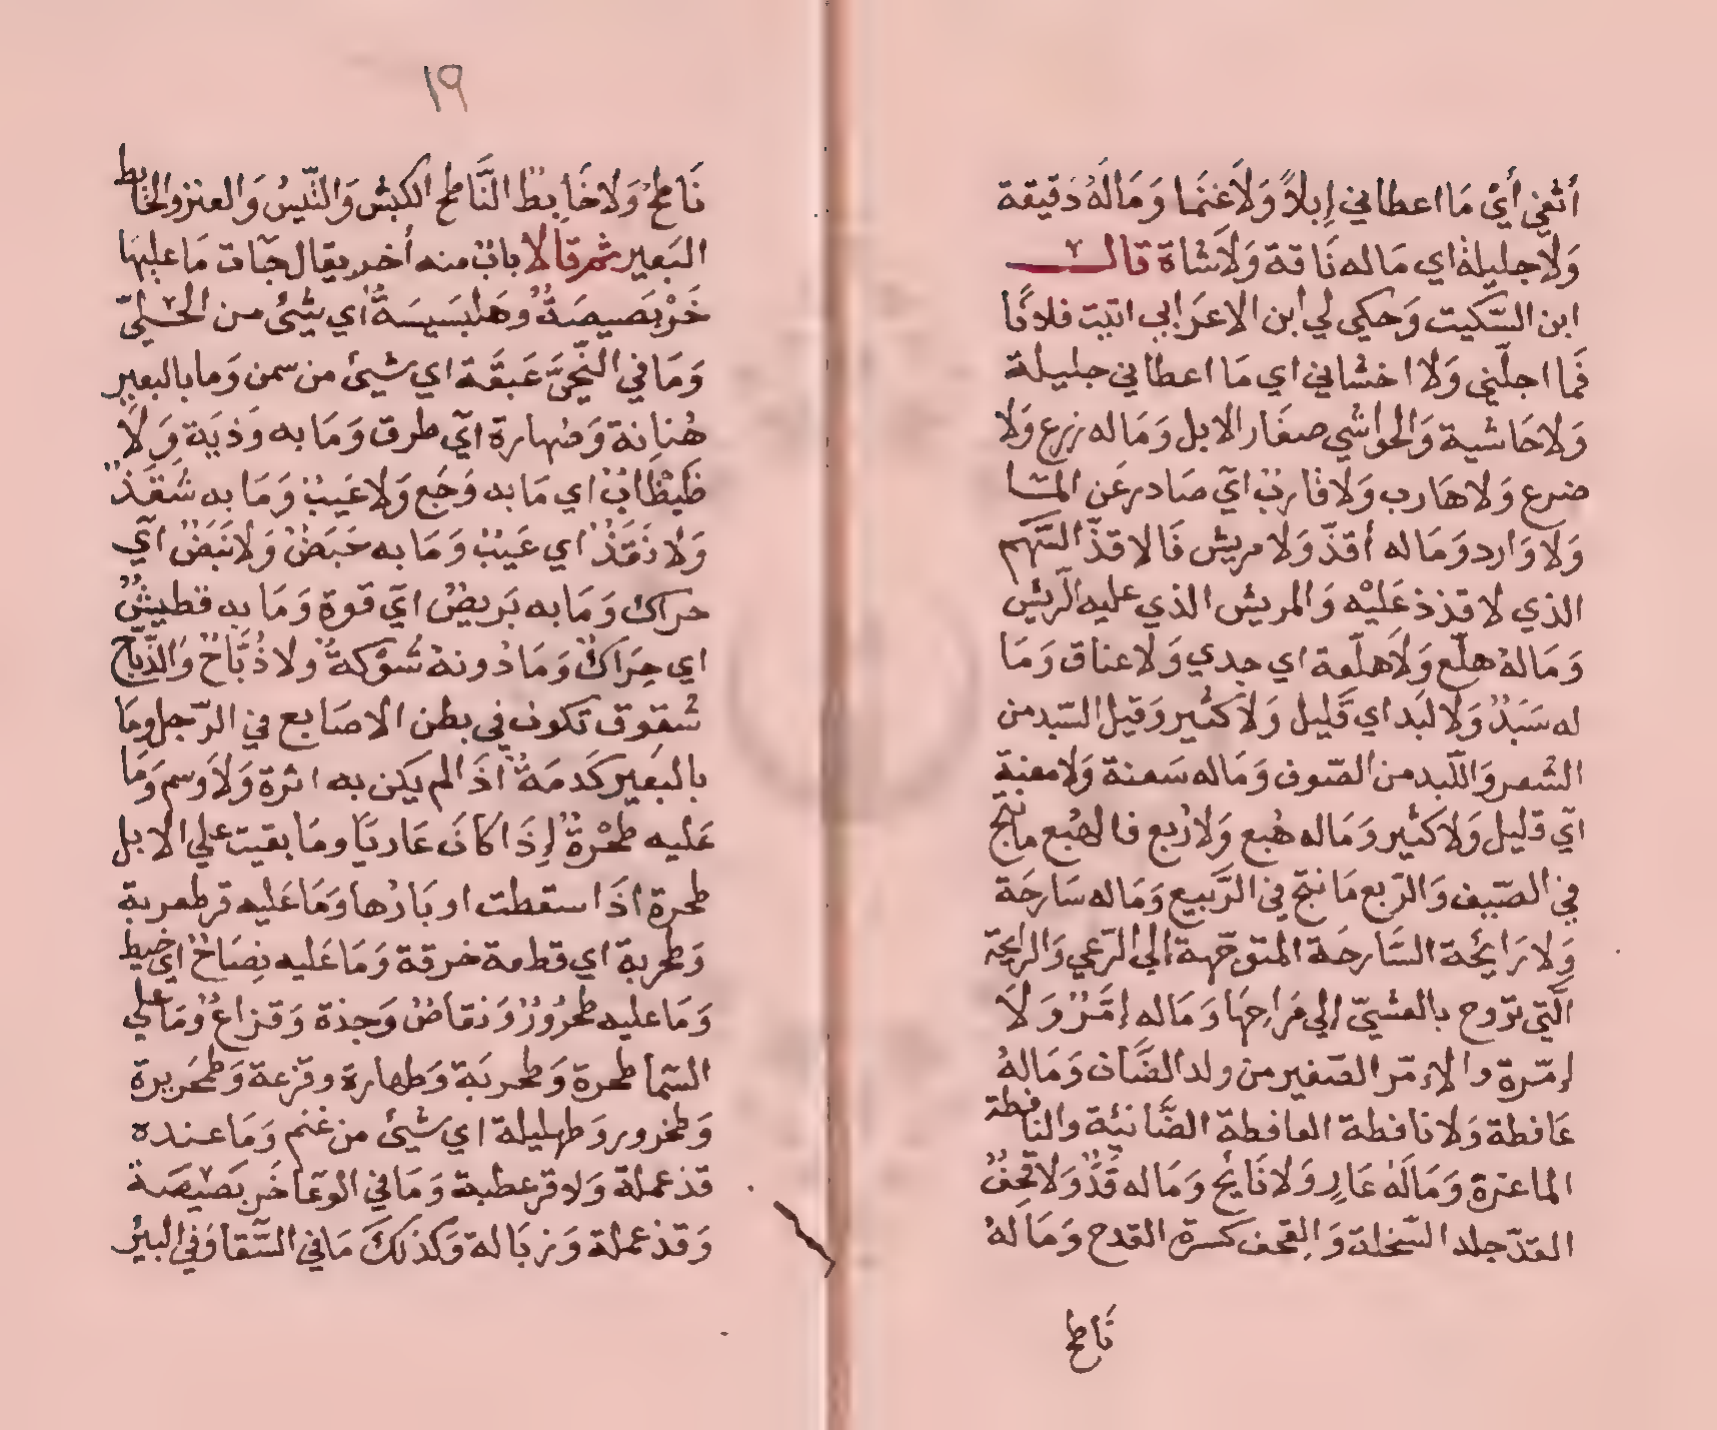 أثغى أَيْ مَا اعطاني إبلاً وَلاَ غنَما وَمَالَهُ دَقيقة
وَلاَ جليلة اي مَاله نَاقة وَلاَ شاة قالــ
ابن السّكيت وَحكي لي ابن الاعرَابي اتيت فلانًا
فَما اجلّني وَلا احشاني اي مَا اعطاني جليلة
وَلا حَاشية وَالحواشي صغَار الابل وَمَاله زرع وَلا
ضرع وَلا هَارب وَلا قاربٌ ايّ صَادر عَن المَا
وَلا وَارد وَمَاله أقذّ وَلا مريش فَالاقذّ السّهم
الذي لا قذذ عَليْه وَالمريش الذي عليه الرّيش
وَمَالهُ هلّع وَلاَ هلّعة اي جدي وَلا عناق وَمَا
له سَبَدٌ وَلا لَبَد اي قَليل وَلاَ كثير وَقيل السّبد من
الشعر وَاللّبد من الصّوف وَمَاله سَعنة وَلا معنة
ايّ قليل وَلا كثير وَمَاله هُبع وَلا رُبع فالهُبع مانتج
في الصّيف وَالرّبع مَا نتج في الرَّبيع وَمَاله سَارحَة
وَلا رَائحَة السَّارحَة المتوجّهة الي الرّعي وَالرايحة
الّتي تروح بالعشيّ الي مَرَاحِهَا وَمَاله إمّرٌ وَلاَ
إمّرة والإمّر الصّغير من ولد الضَّان وَمَالهُ
عَافطة وَلا نافطة العافطة الضَّانئة والنافطة
الماعزة وَمَالَهُ عَارٍ وَلا نَابح وَمَاله قَدٌّ وَلا قِحْفٌ
القدّ جلد السّخلة وَالِقحف كسرة القدح وَمَالهُ
نَاطح
١٩
نَاطحٌ وَلا خَابِطٌ النَّاطح الكبش وَالتّيسُ وَالعنز والخابط
البَعير ثم قالا بابٌ منه أخر يقال جَآت مَا عليهَا
خَرْبَصيصَةٌ وهَلبَسيسَةٌ اي شيْئ من الحُليّ
وَمَا في النِّحْيّ عَبقَة اي شيْئ من سمن وَما بالبعير
هُنانة وَصُهارة ايّ طرق وَمَا به وَذيَة وَلاَ
ظَبْظَابٌ اي مَا به وَجَع وَلا عَيبٌ وَمَا به شَقَذٌ
وَلا نَقَذٌ اي عَيبٌ وَمَا به حَبَضٌ وَلا نَبَضٌ ايّ
حراك وَمَا به بَريصٌ ايّ قوة وَمَا به نطيشٌ
اي حِرَاكٌ وَمَا دُونهُ شوْكةٌ ولا ذُبَّاحٌ وَالذُّبَّاح
شقوق تكون في بطن الاصَابع في الرّجل ومَا
بالبَعير كَدمَةٌ اذَا لم يَكن به اثرة وَلاَ وسم وَمَا
عَليه طحْرةٌ إذَا كانَ عَاريًا ومَا بقيت علي الابل
طحرة اذَا سقطت اوبَارُها وَمَا عَليه قرطعربة
وَطحربة اي قطعة خرقة وَمَا عَليه نِصَاحٌ اي خيط
وَمَا عليه طحرُورٌ وَنقاضٌ وَجذة وَقزاعٌ وَمَا علي
السّما طحرة وَطحربَة وَطهارة وقزعة وَطحَريرة
وَطخرور وَطهليلة اي شيْئ من غَنم وَمَا عنده
قذعملة وَلا قرعطبة وَمَا في الوعَا خَربَصيصَة
وَقذعملة وَزبَالة وَكذلكَ مَا في السّقا وَفي البير